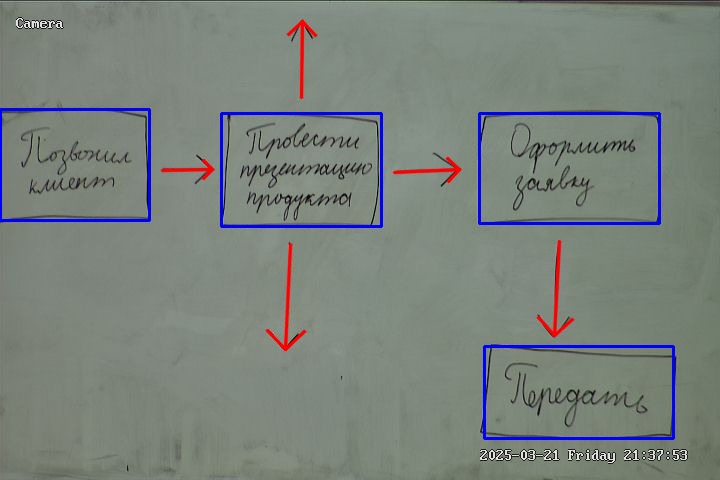 Camera
Позвонил
клиент
Провести
презентацию
продукта
Оформить
заявку
Передать
2025-03-21 Friday 21:37:53